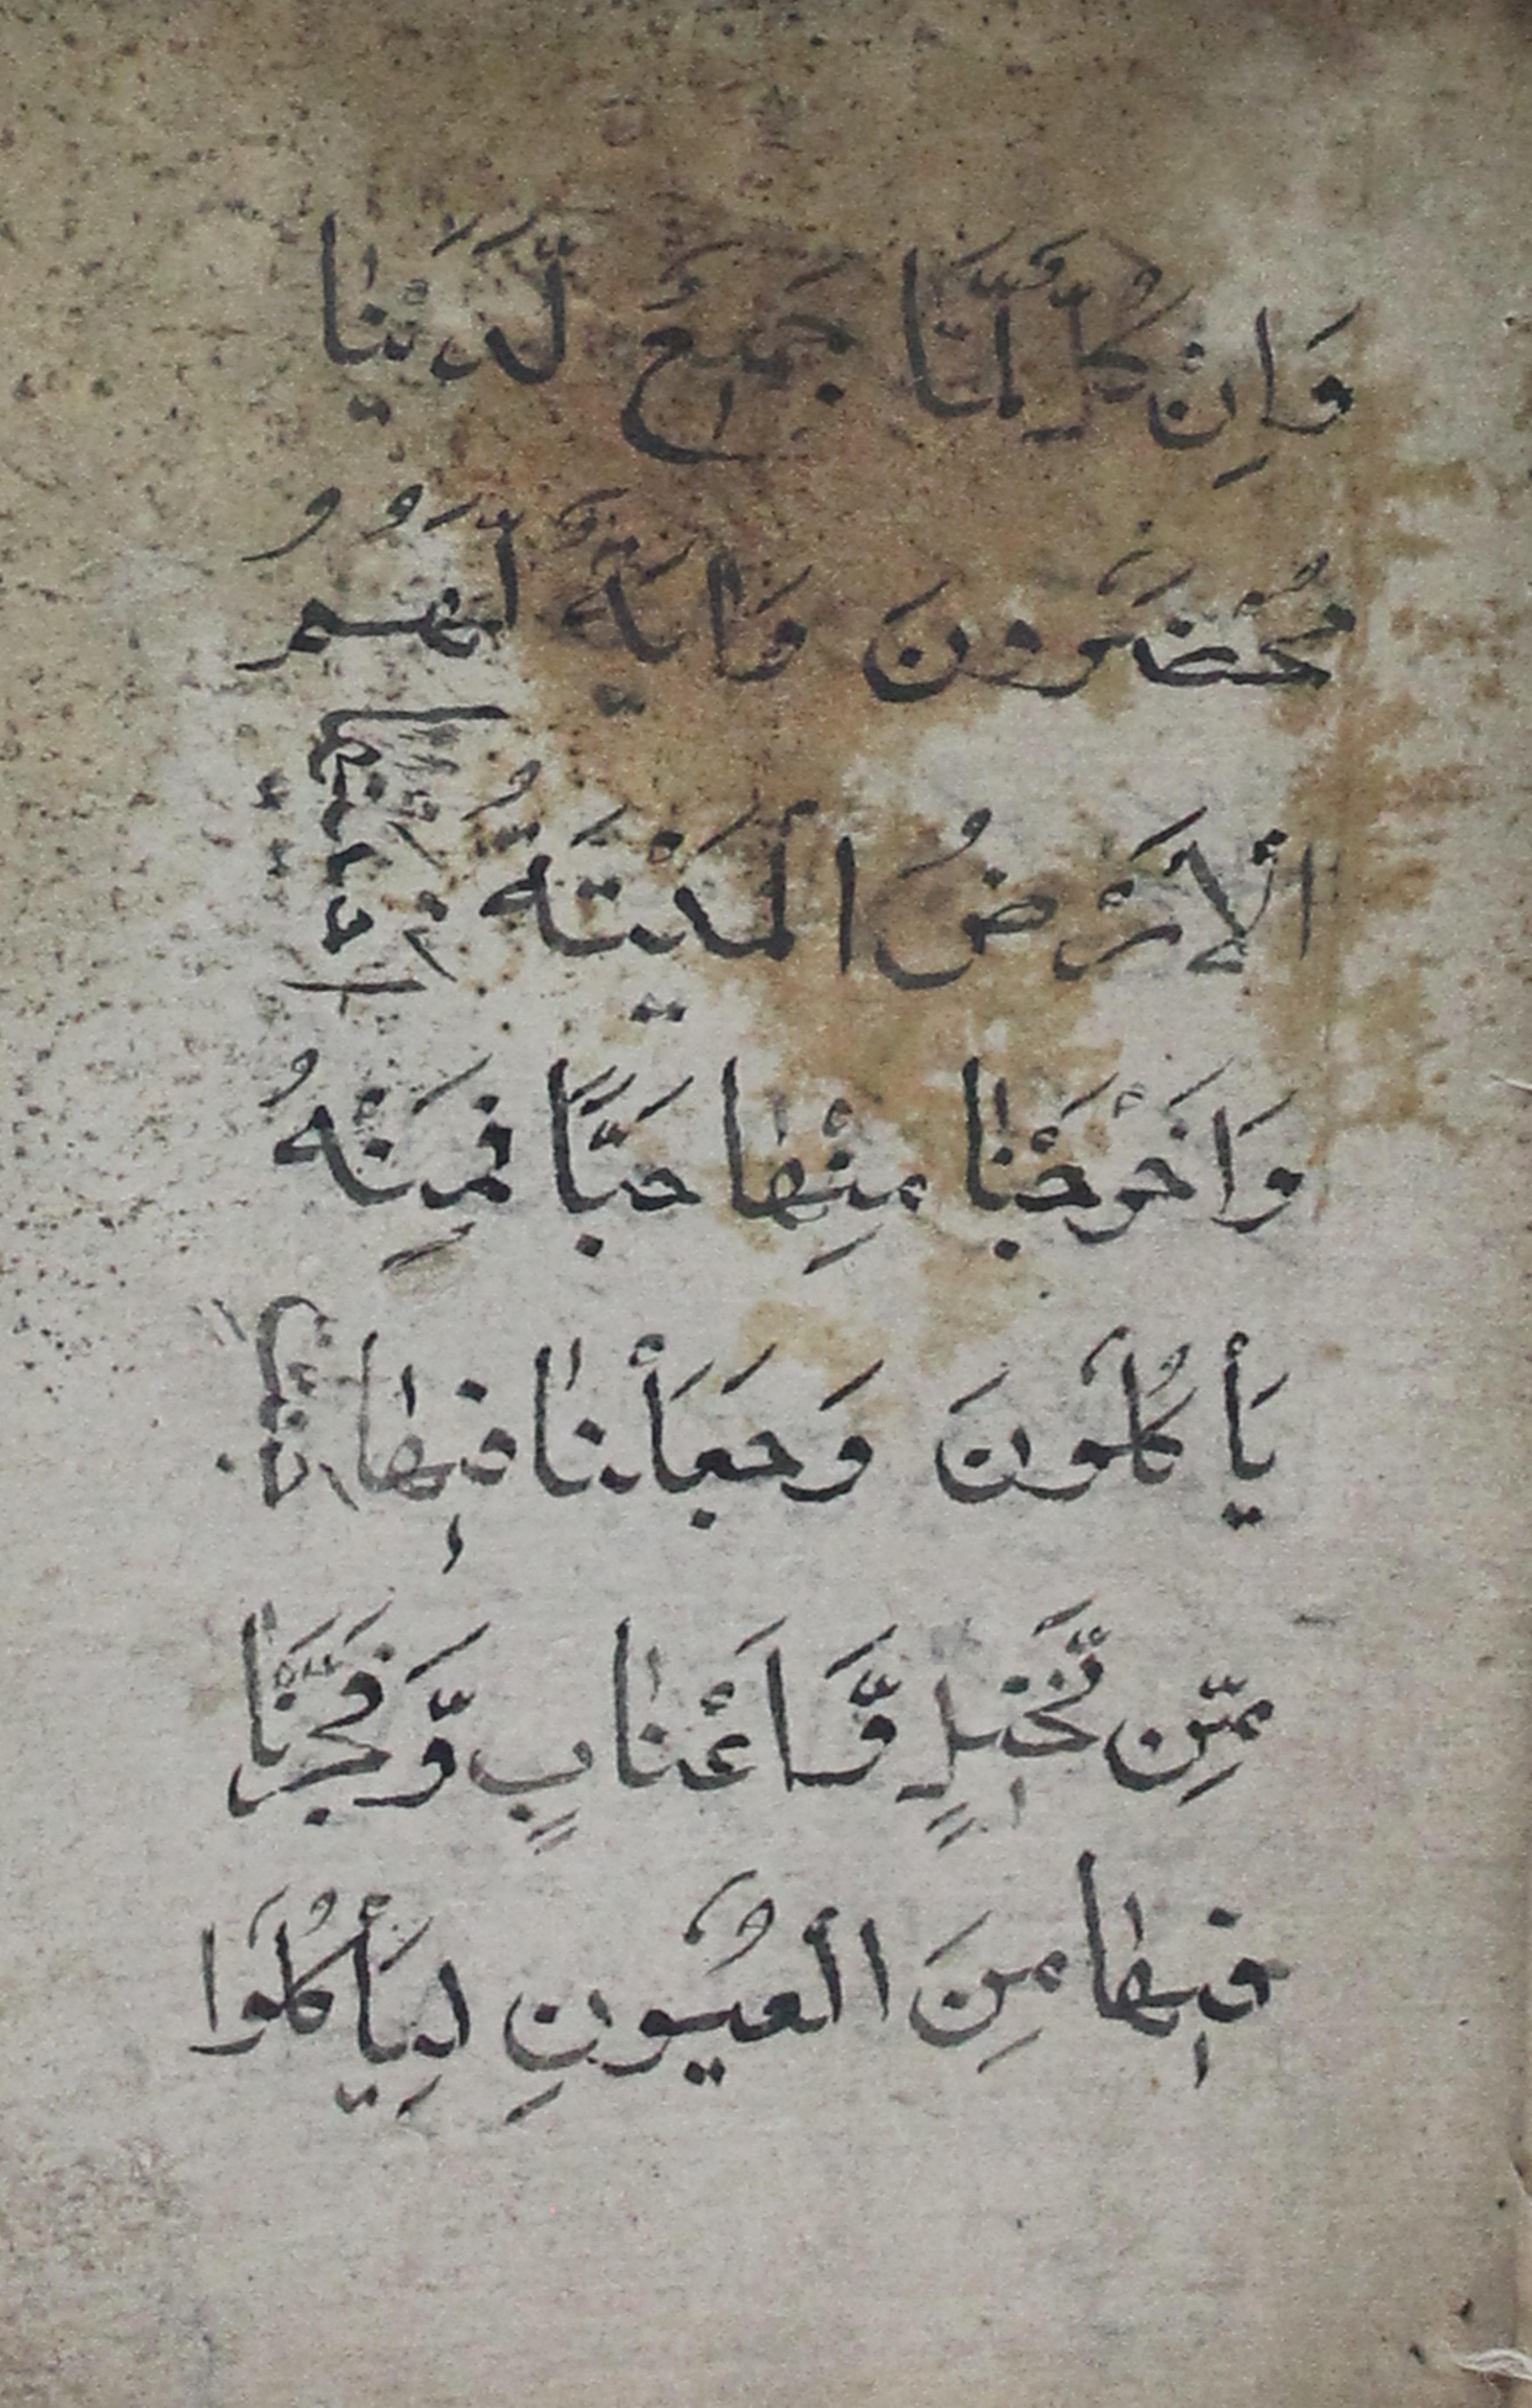 وَاِنْ كُلٌّ لَّمَّا جَمِيْعٌ لَّدَيْنَا
مُحْضَرُوْنَ وَاٰيَةٌ لَّهُمُ
الْاَرْضُ الْمَيْتَةُ
وَاَخْرَجْنَا مِنْهَا حَبًّا فَمِنْهُ
يَأْكُلُوْنَ وَجَعَلْنَا فِيْهَا
مِّنْ نَّخِيْلٍ وَّاَعْنَابٍ وَّفَجَّرْنَا
فِيْهَا مِنَ الْعُيُوْنِ لِيَأْكُلُوْا